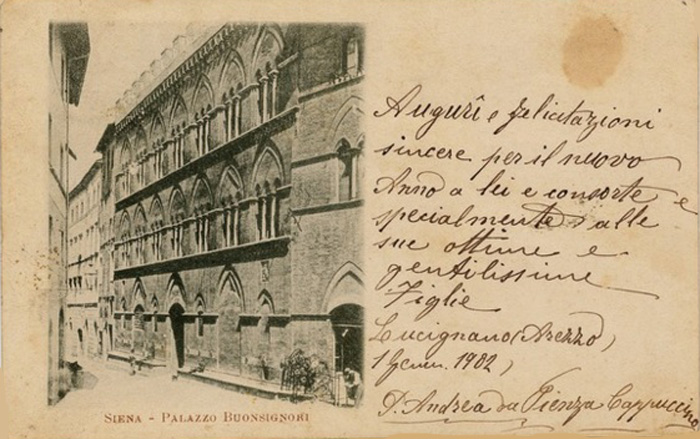 Augurî e felicitazioni
sincere per il nuovo
Anno a lei e consorte e
specialmente alle
sue ottime e
gentilissime
Figlie
Lucignano (Arezzo)
1 Genn. 1902)
P. Andrea da Pienza Cappuccino
SIENA - PALAZZO BUONSIGNORI